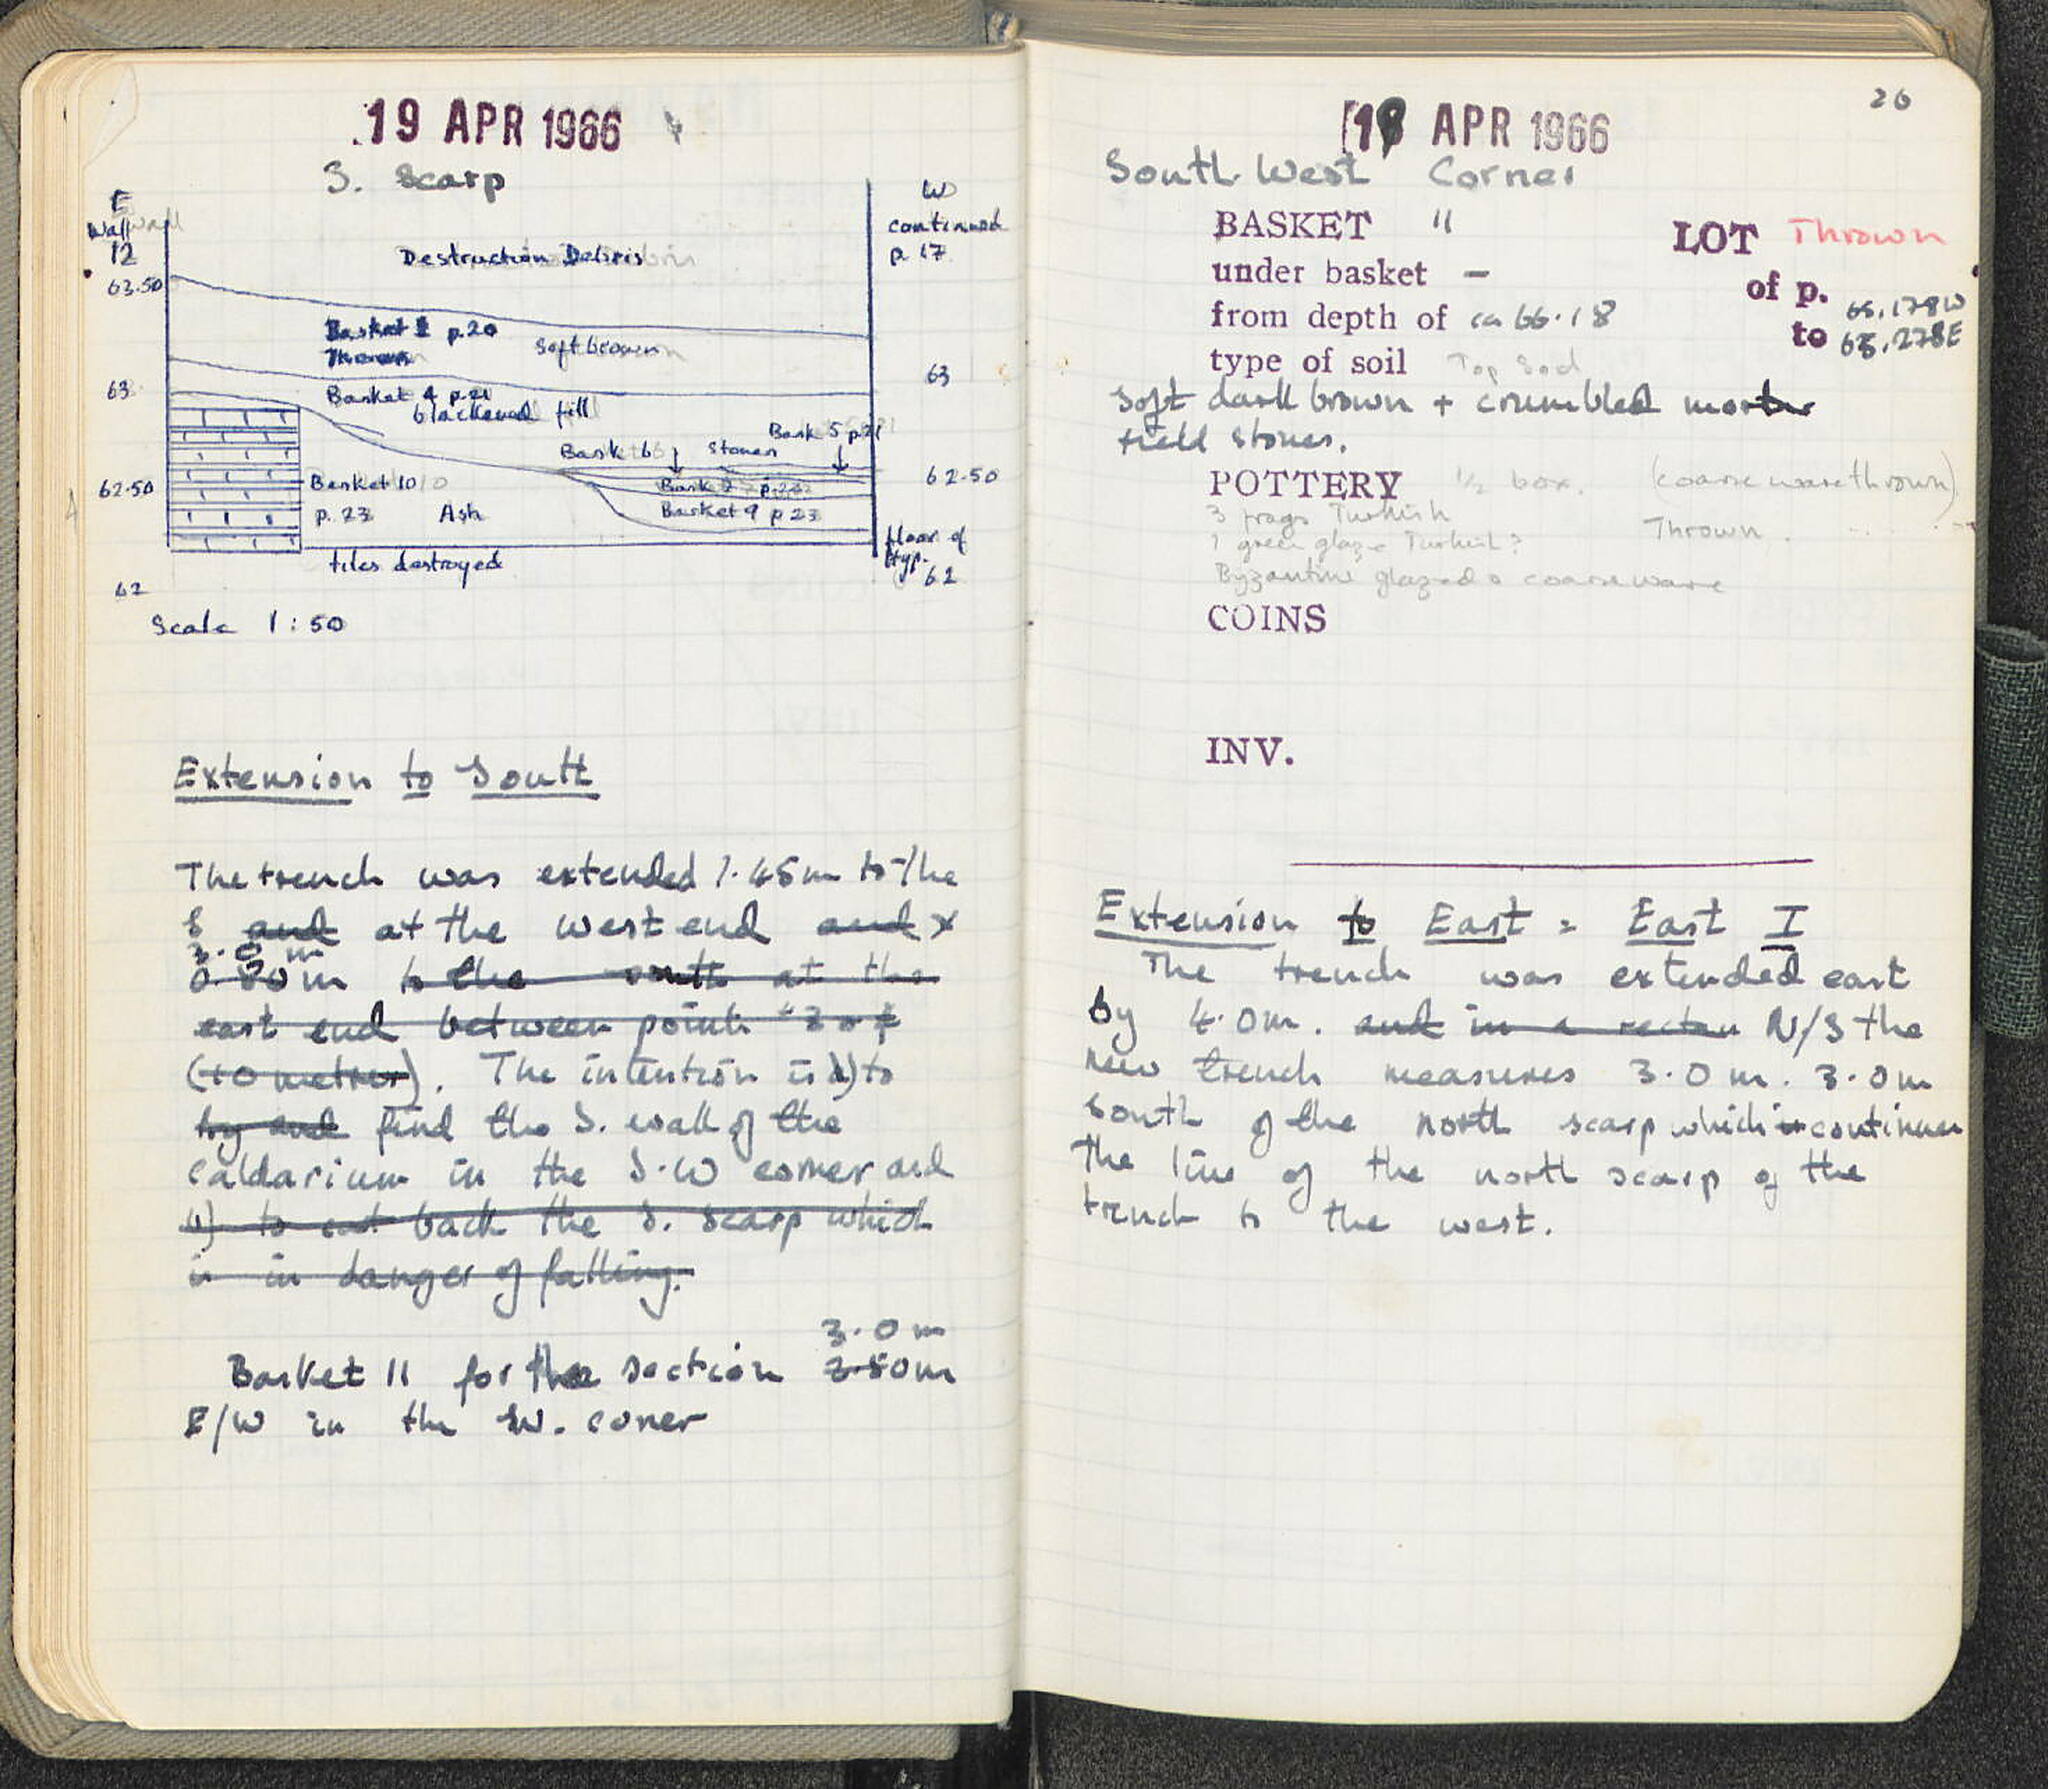 19 APR 1966
S. Scarp
E
Wall
12
W
continued
p. 17
Destruction Debris
63.50
Basket 1 p.20
Thrown
Soft brown
63
63
Basket 4 p.21
blackened fill
Bask 5 p.21
Bask 6
Stones
62.50
62.50
Basket 10
p. 23 Ash
Basket 9 p 23
floor of
Hyp.
62
tiles destroyed
62
Scale 1:50
Extension to South
The trench was extended 1.45m to the
S and at the west end and x
3.0 m
0.80m to the south at the
east end between points
(10 metres). The intention is to
try and find the S. wall of the
Caldarium in the S.W corner and
ii) to cut back the S. scarp which
is in danger of falling.
3.0 m
Basket 11 for the section 2.50m
E/W in the SW. coner
26
APR 1966
South West Corner
BASKET 11
LOT Thrown
under basket —
of p. 65.178W
from depth of ca 66.18
to 65.278E
type of soil Top Soil
Soft dark brown + crumbled mortar
field stones.
POTTERY 1/2 box. (coarse ware thrown)
3 frags Turkish
Thrown.
1 green glaze Turkish?
Byzantine glazed & coarse ware
COINS
INV.
Extension to East = East I
The trench was extended east
by 4.0m. and in a N/S the
new trench measures 3.0m. 3.0m
south of the north scarp which is continues
the line of the north scarp of the
trench to the west.